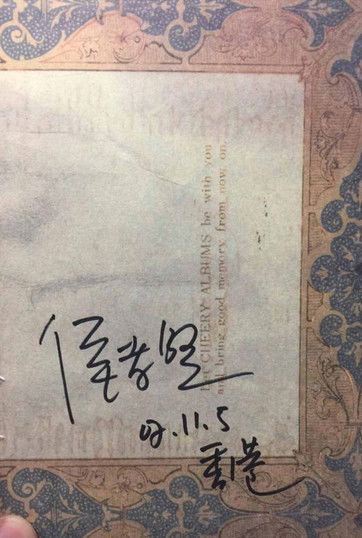 CHEERY ALBUMS be with you
and bring good memory from now on.
侯孝賢
07.11.5
香港